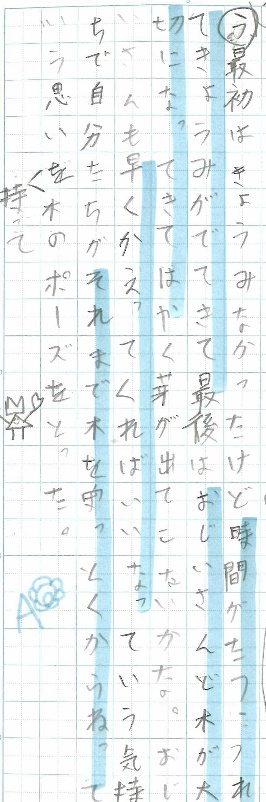 う最初はきょうみなかったけど時間がたつにつれ
てきょうみがでてきて最後はおじいさんと木が大
切になってきてはかく芽が出てこないかな。おじ
いさんも早くかえってくれればいいなっていう気持
ちで自分たちがそれまで木を守っとくからねって
いう思いを木のポーズをとった。
く持って
A